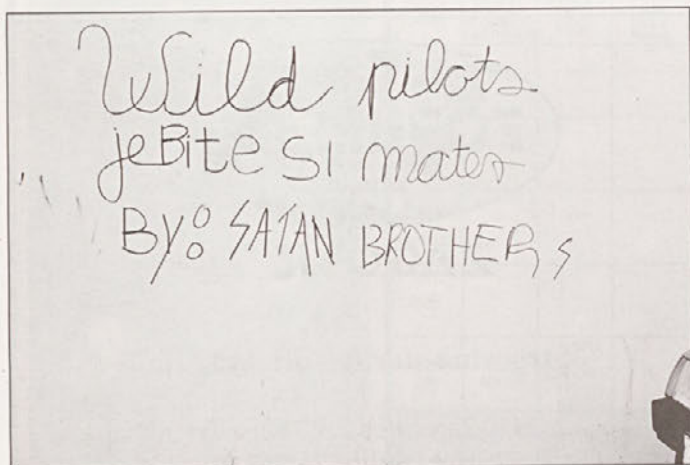 Wild pilots
jeBite si mater
By: SATAN BROTHERS